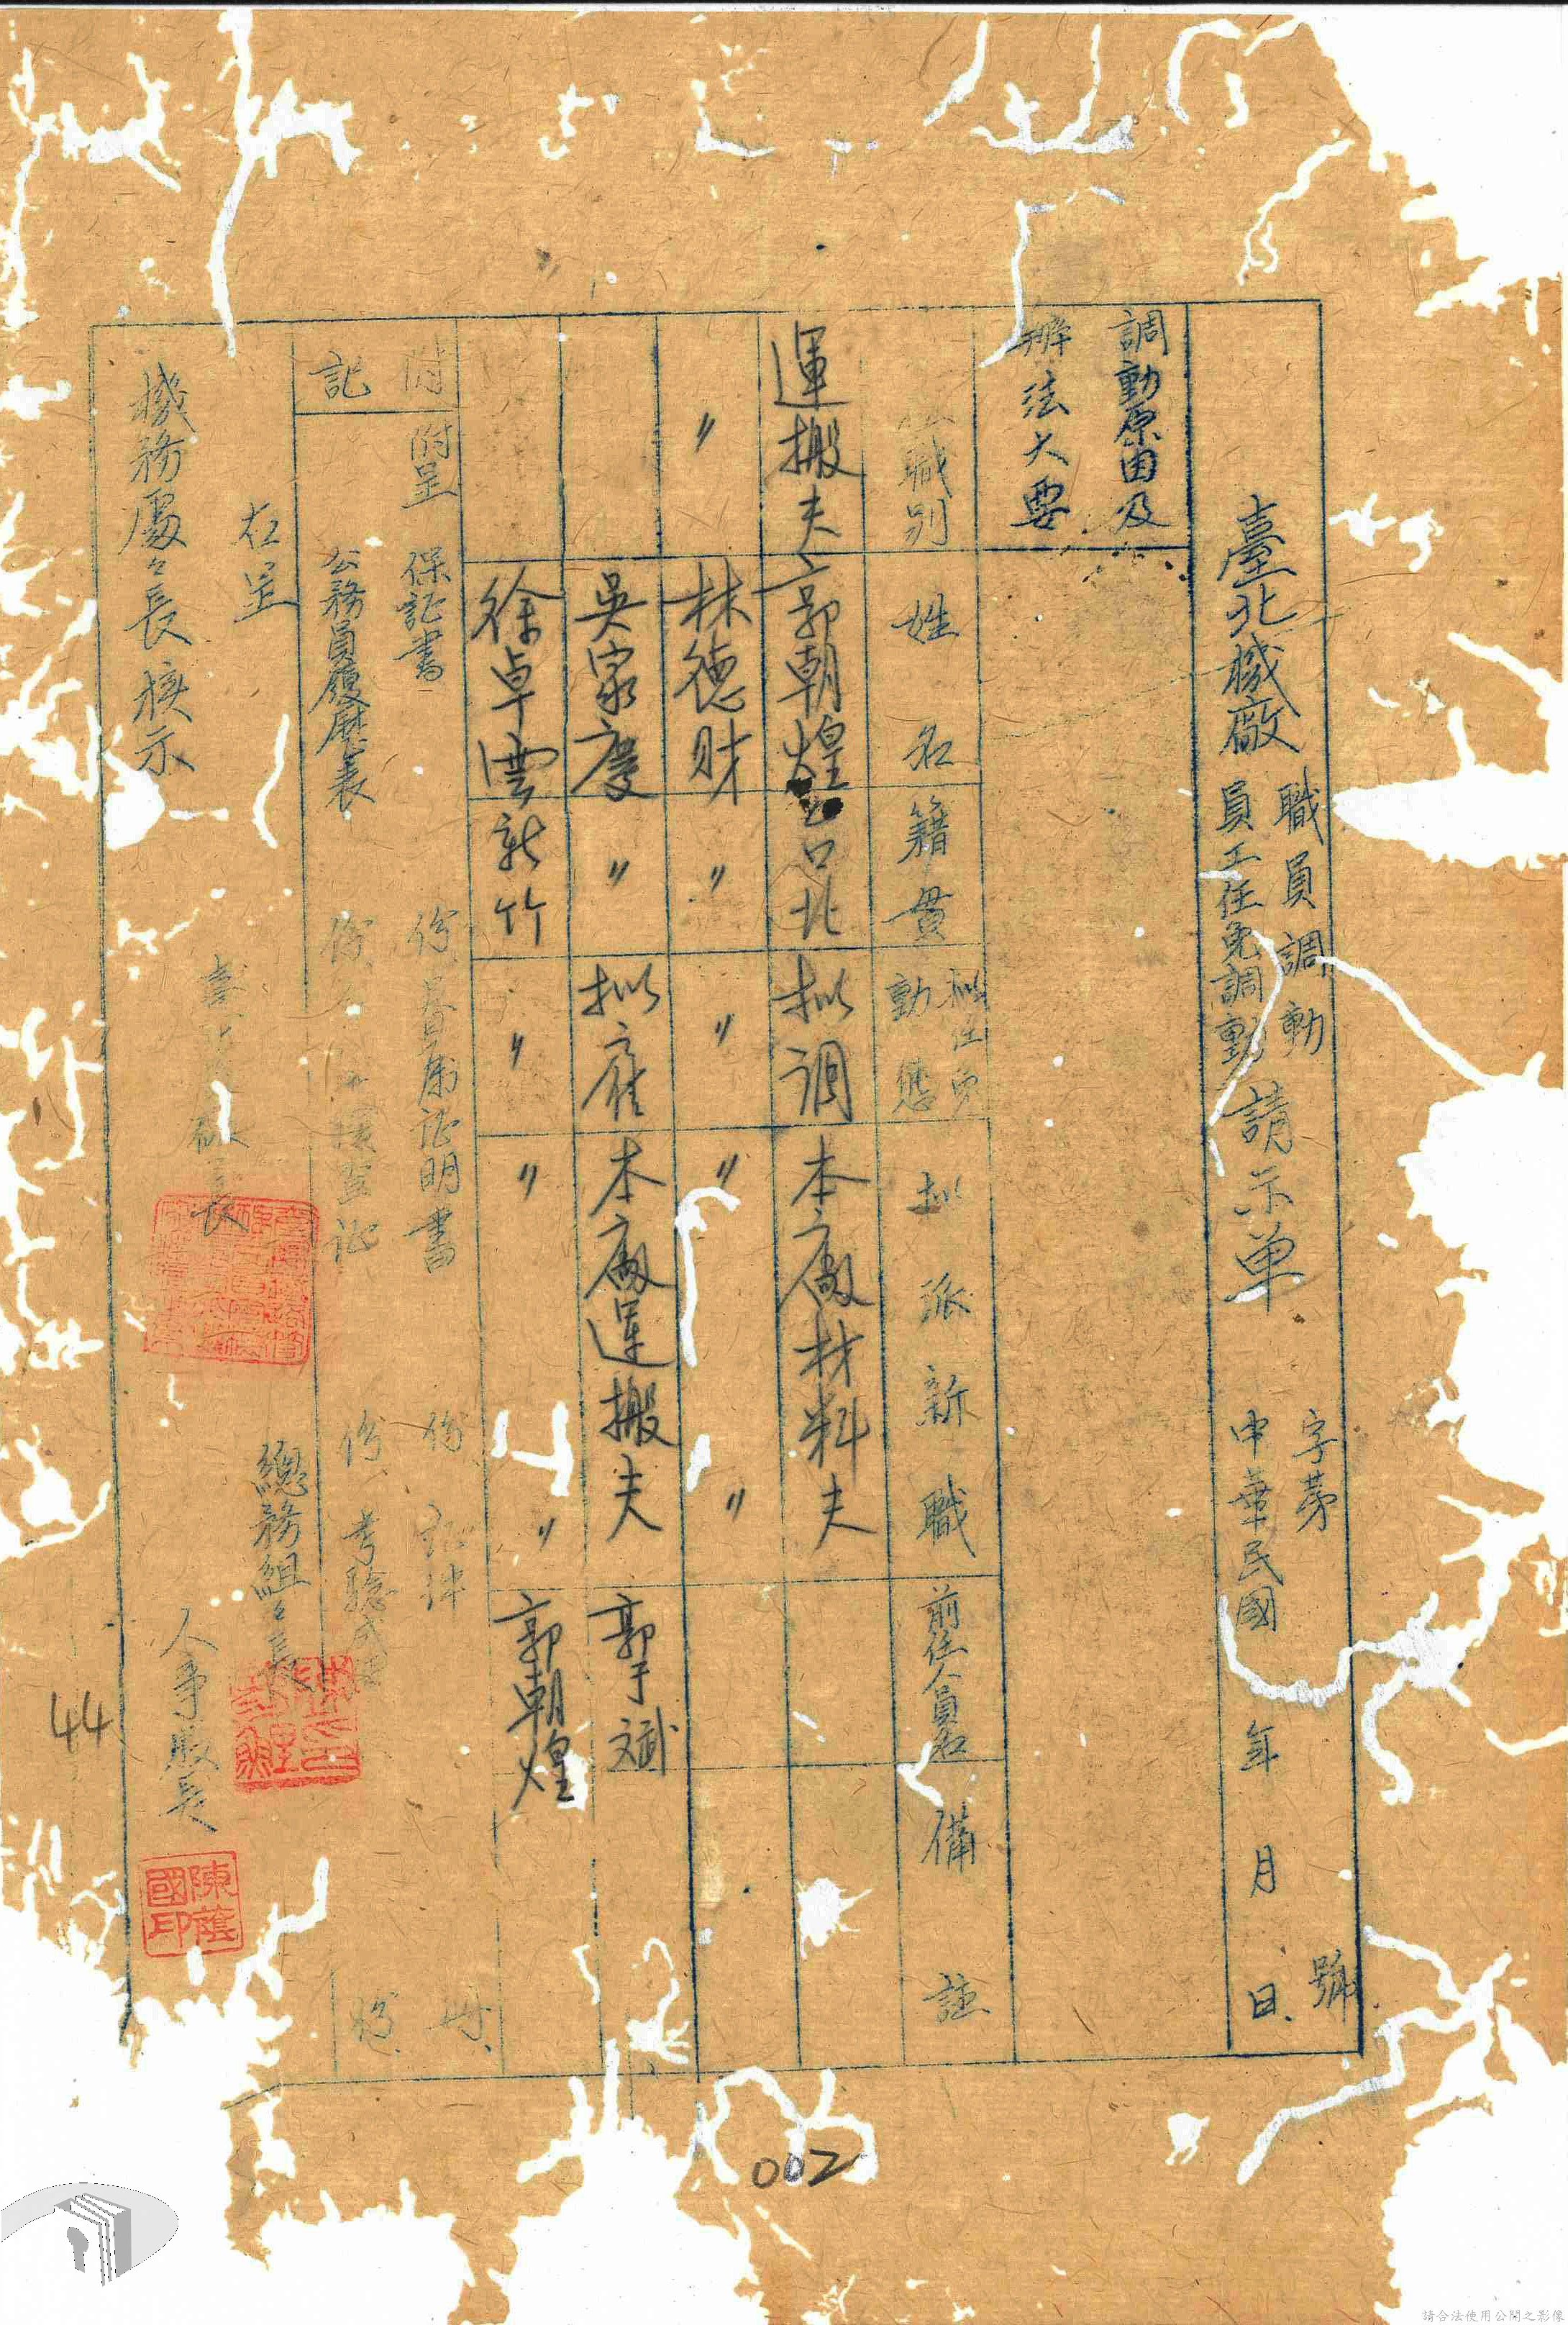 字第 號
臺北機廠 職員調動 員工任免調動 請示单 中華民國 年 月 日
調動原因及
辦法大要
職別 姓名 籍貫 擬任免動態 擬派新職 前任人員名 備註
運搬夫 郭朝煌 台北 拟調 本廠材料夫
〃 林德財 〃 〃 〃 〃
吳家慶 〃 拟雇 本廠運搬夫 郭于斌
徐卓雲 新竹 〃 〃 〃 郭朝煌
附記
附呈 保証書 份 眷属证明書 份 冊
公務員履歷表 份 证 份 考驗成 份
右呈
機務處々長核示
長
總務組々長
人事股長
陳蔭國印
44
002
請合法使用公開之影像